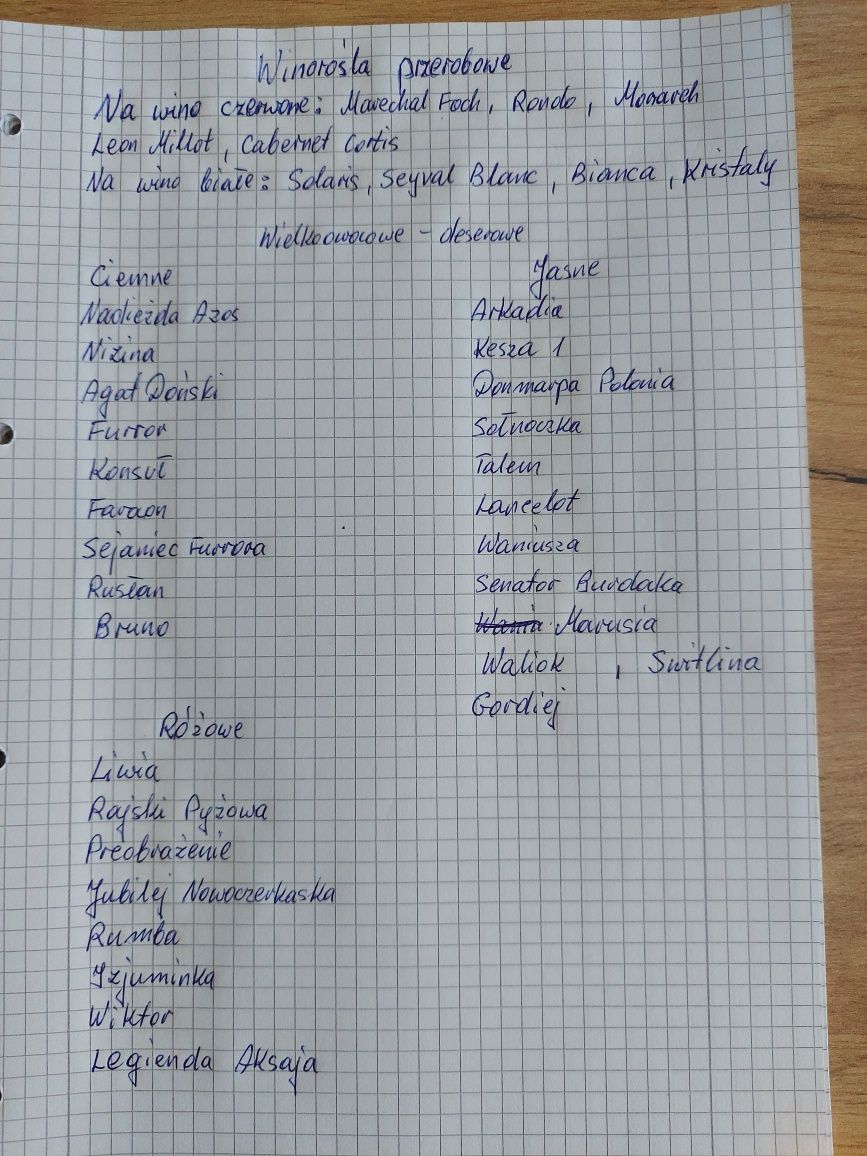 Winorośla przerobowe
Na wino czerwone: Marechal Foch, Rondo, Monarch
Leon Millot, Cabernet Cortis
Na wino białe: Solaris, Seyval Blanc, Bianca, Kristaly
Wielkoowocowe - deserowe
Ciemne
Nadieżda Azos
Nizina
Agat Doński
Furror
Konsuł
Faraon
Sejaniec Furrora
Rusłan
Bruno
Jasne
Arkadia
Kesza 1
Donmarpa Polonia
Sołnoczka
Talem
Lancelot
Waniusza
Senator Burdaka
Marusia
Waliok , Switlina
Gordiej
Różowe
Liwia
Rajski Pyżowa
Preobrażenie
Jubilej Nowoczerkaska
Rumba
Izjuminka
Wiktor
Legienda Aksaja